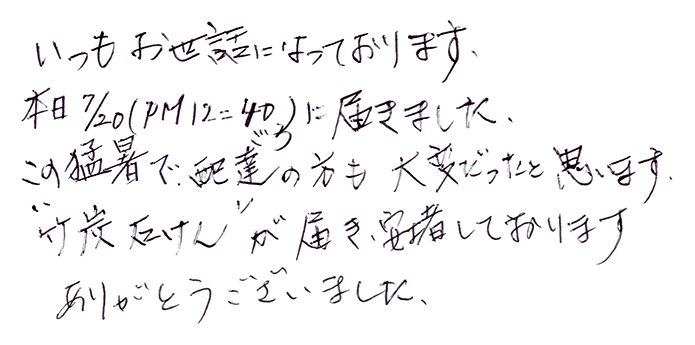 いつもお世話になっております、
本日7/20(PM12=40ごろ)に届きました、
この猛暑で、配達の方も大変だったと思います、
"竹炭石けん"が届き、安堵しております
ありがとうございました、